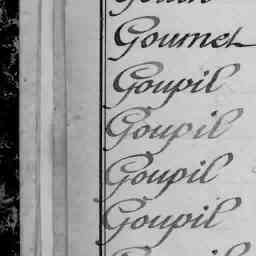 Gournet
Goupil
Goupil
Goupil
Goupil